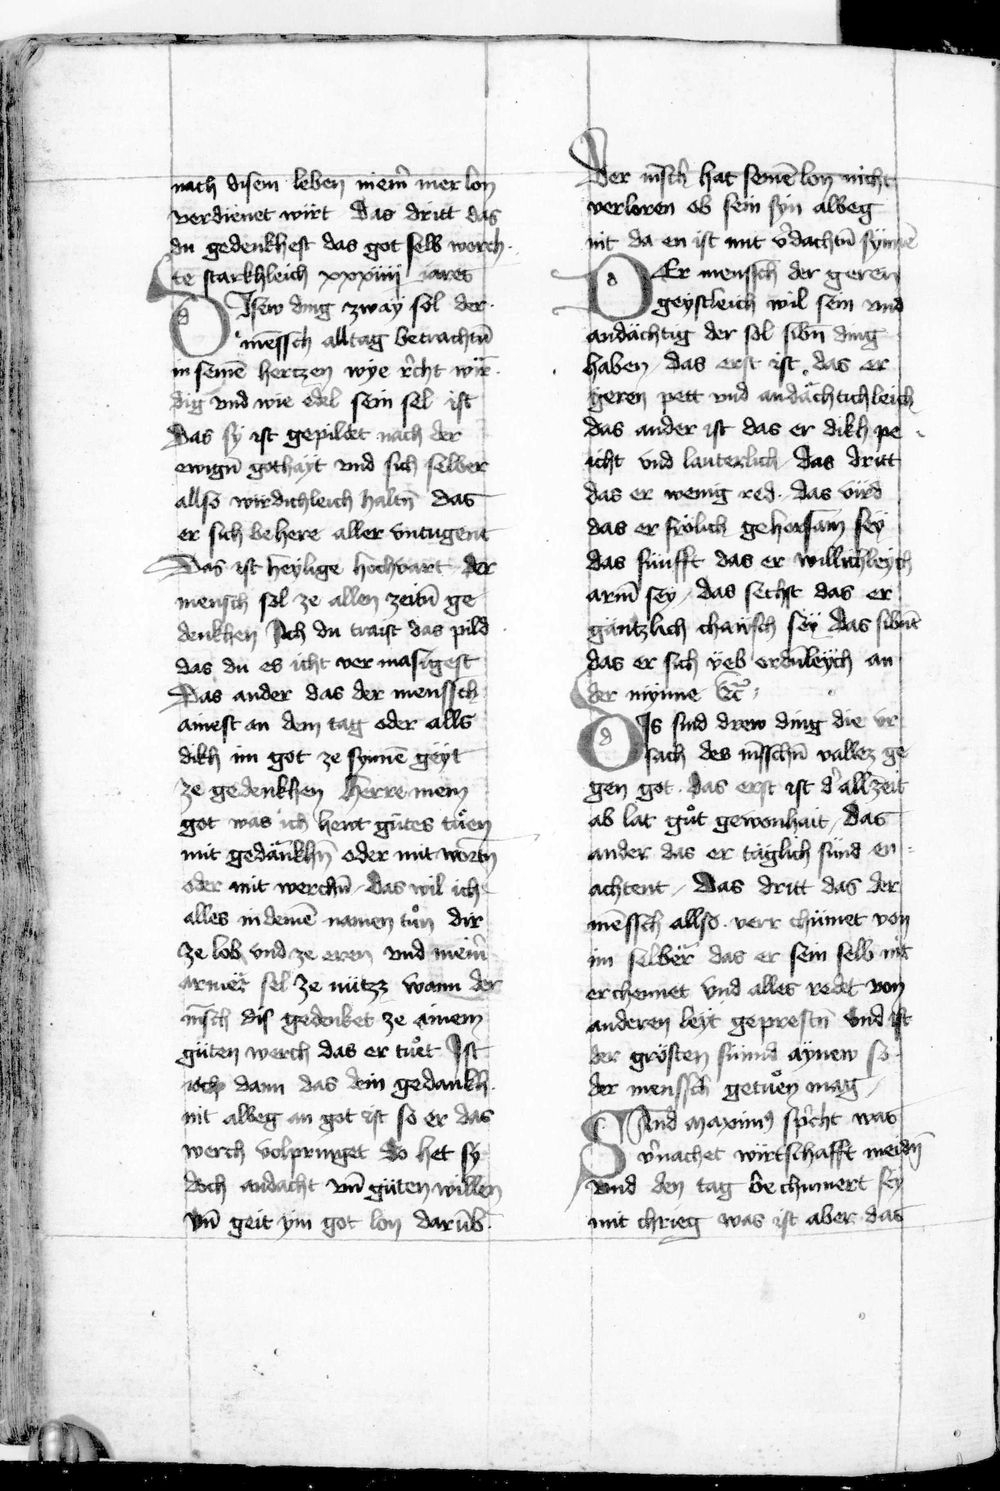 nach disem leben niem̄ mer lon
verdienet wirt Das dritt das
du gedenkhest das got selb worch
te starkhleich xxxiiij iares
DIsew ding zway sol der
menssch alltag betrachtn̄
in seinē hertzen wye r̄cht wir
dig vnd wie edel sein sel ist
Das sy ist gepildet nach der
ewign̄ gothayt vnd sich selber
allso wirdichleich haltn̄ Das
er sich behere aller vntugent
Das ist heylige hochvart der
mensch sol ze allen zeitn̄ ge
denkhen Ich du traist das pild
das du es icht vermasigest
Das ander das der menssch
ainest an dem tag oder alls
dikh im got ze synnē geyt
ze gedenkhen Herre mein
got was ich hewt gutes tuͤen
mit gedänkhn̄ oder mit wortn̄
oder mit werchn̄ Das wil ich
alles in deinē namen tuͦn dir
ze lob vnd ze eren vnd mein̄
armer sel ze nütz wann der
m̄sch dis gedenket ze ainem
guten werch das er tuͦet Ist
ioch dann das dein gedankh
nit albeg an got ist so er das
werch volpringet So het sy
doch andacht vn̄ guten willen
vn̄ geit ym got lon darūb
Der m̄sch hat seinē lon nicht
verloren ob sein syn albeg
nit da en ist mit v̄dachtn̄ synnē
DEr menssch der geren
geystleich wil sein vnd
andächtig der sol sibn̄ ding
haben / das erst ist das er
geren pett vnd andächtichleich
das ander ist das er dikh pe
icht vnd lauterlich / Das dritt
das er wenig red · das vird
das er frölich gehorsam sey
das fünfft das er willichleych
arm̄ sey / das sechst das er
gäntzlich chawsch sey Das sibnt̄
das er sich yeb ordn̄leych an
der mynne Etc̄
DIs sind drew ding die vr
sach des m̄sschn̄ vallez ge
gen got · das erst ist d' allzeit
ab lat guͦt gewonhait / Das
ander das er täglich sünd en
achtent / Das dritt das der
mēssch allso verr chümet von
im selber das er sein selb nit
erchennet vnd alles redet von
anderen leyt geprestn̄ vnd ist
der grösten sünnd aynew so
der menssch getuͦen mag /
SAnd maximꝰ spricht was
v̄nachet wirtschafft meidn̄
vnd den tag bechumert sey
mit chrieg was ist aber das